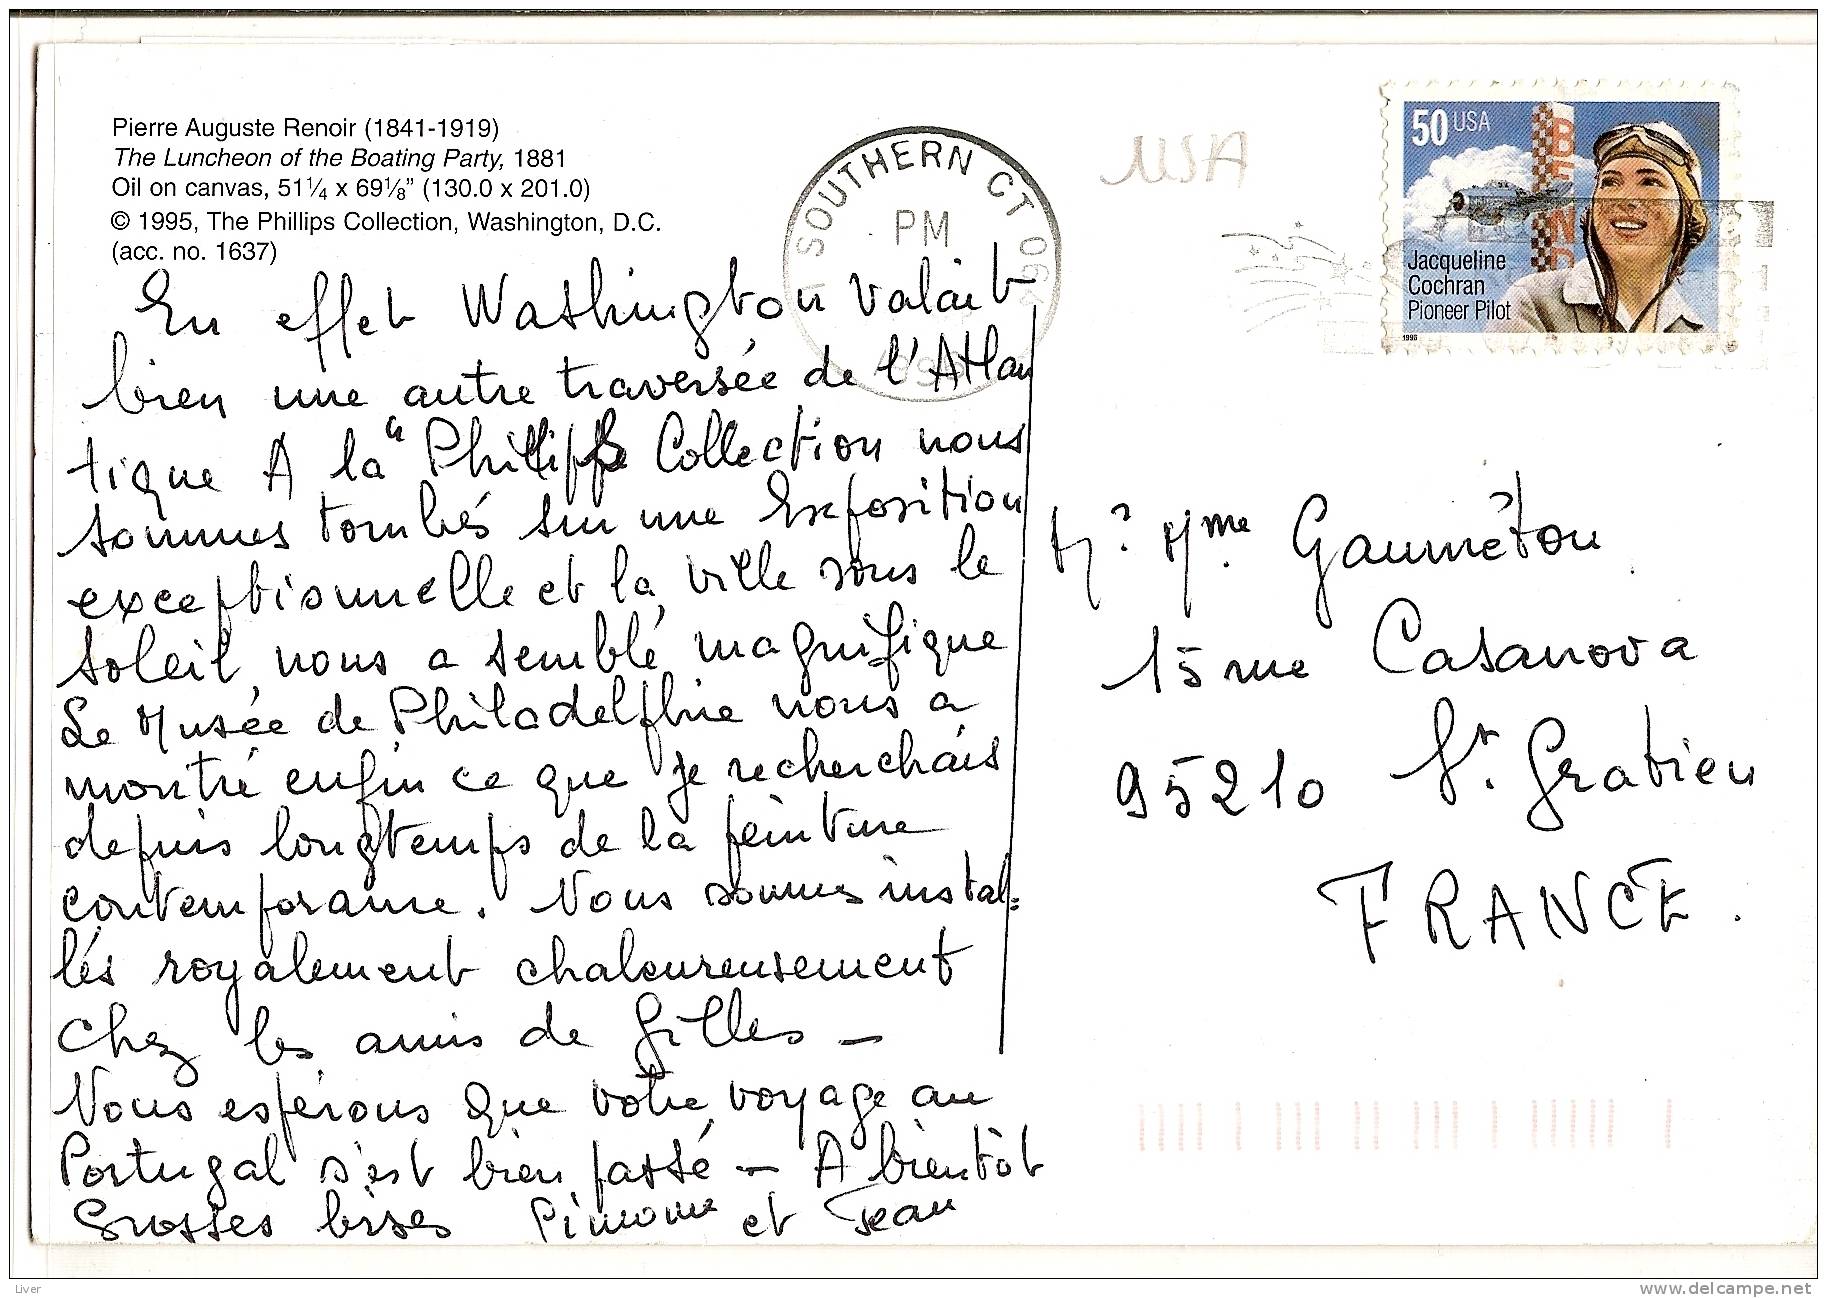 Pierre Auguste Renoir (1841-1919)
The Luncheon of the Boating Party, 1881
Oil on canvas, 51¼ x 69⅛" (130.0 x 201.0)
© 1995, The Phillips Collection, Washington, D.C.
(acc. no. 1637)
SOUTHERN CT 06
PM
USA
50 USA
BEND
Jacqueline
Cochran
Pioneer Pilot
1996
En effet Washington valait
bien une autre traversée de l'Atlan
tique A la "Phillips Collection nous
sommes tombés sur une Exposition
exceptionnelle et la ville sous le
soleil nous a semblé magnifique
Le Musée de Philadelphie nous a
montré enfin ce que je recherchais
depuis longtemps de la peinture
contemporaine. Nous sommes instal=
lés royalement chaleureusement
chez les amis de Gilles –
Nous espérons que votre voyage au
Portugal s'est bien passé – A bientôt
Grosses bises Simone et Jean
M. Mme Gauméton
15 rue Casanova
95210 St. Gratien
FRANCE.
Liver
www.delcampe.net